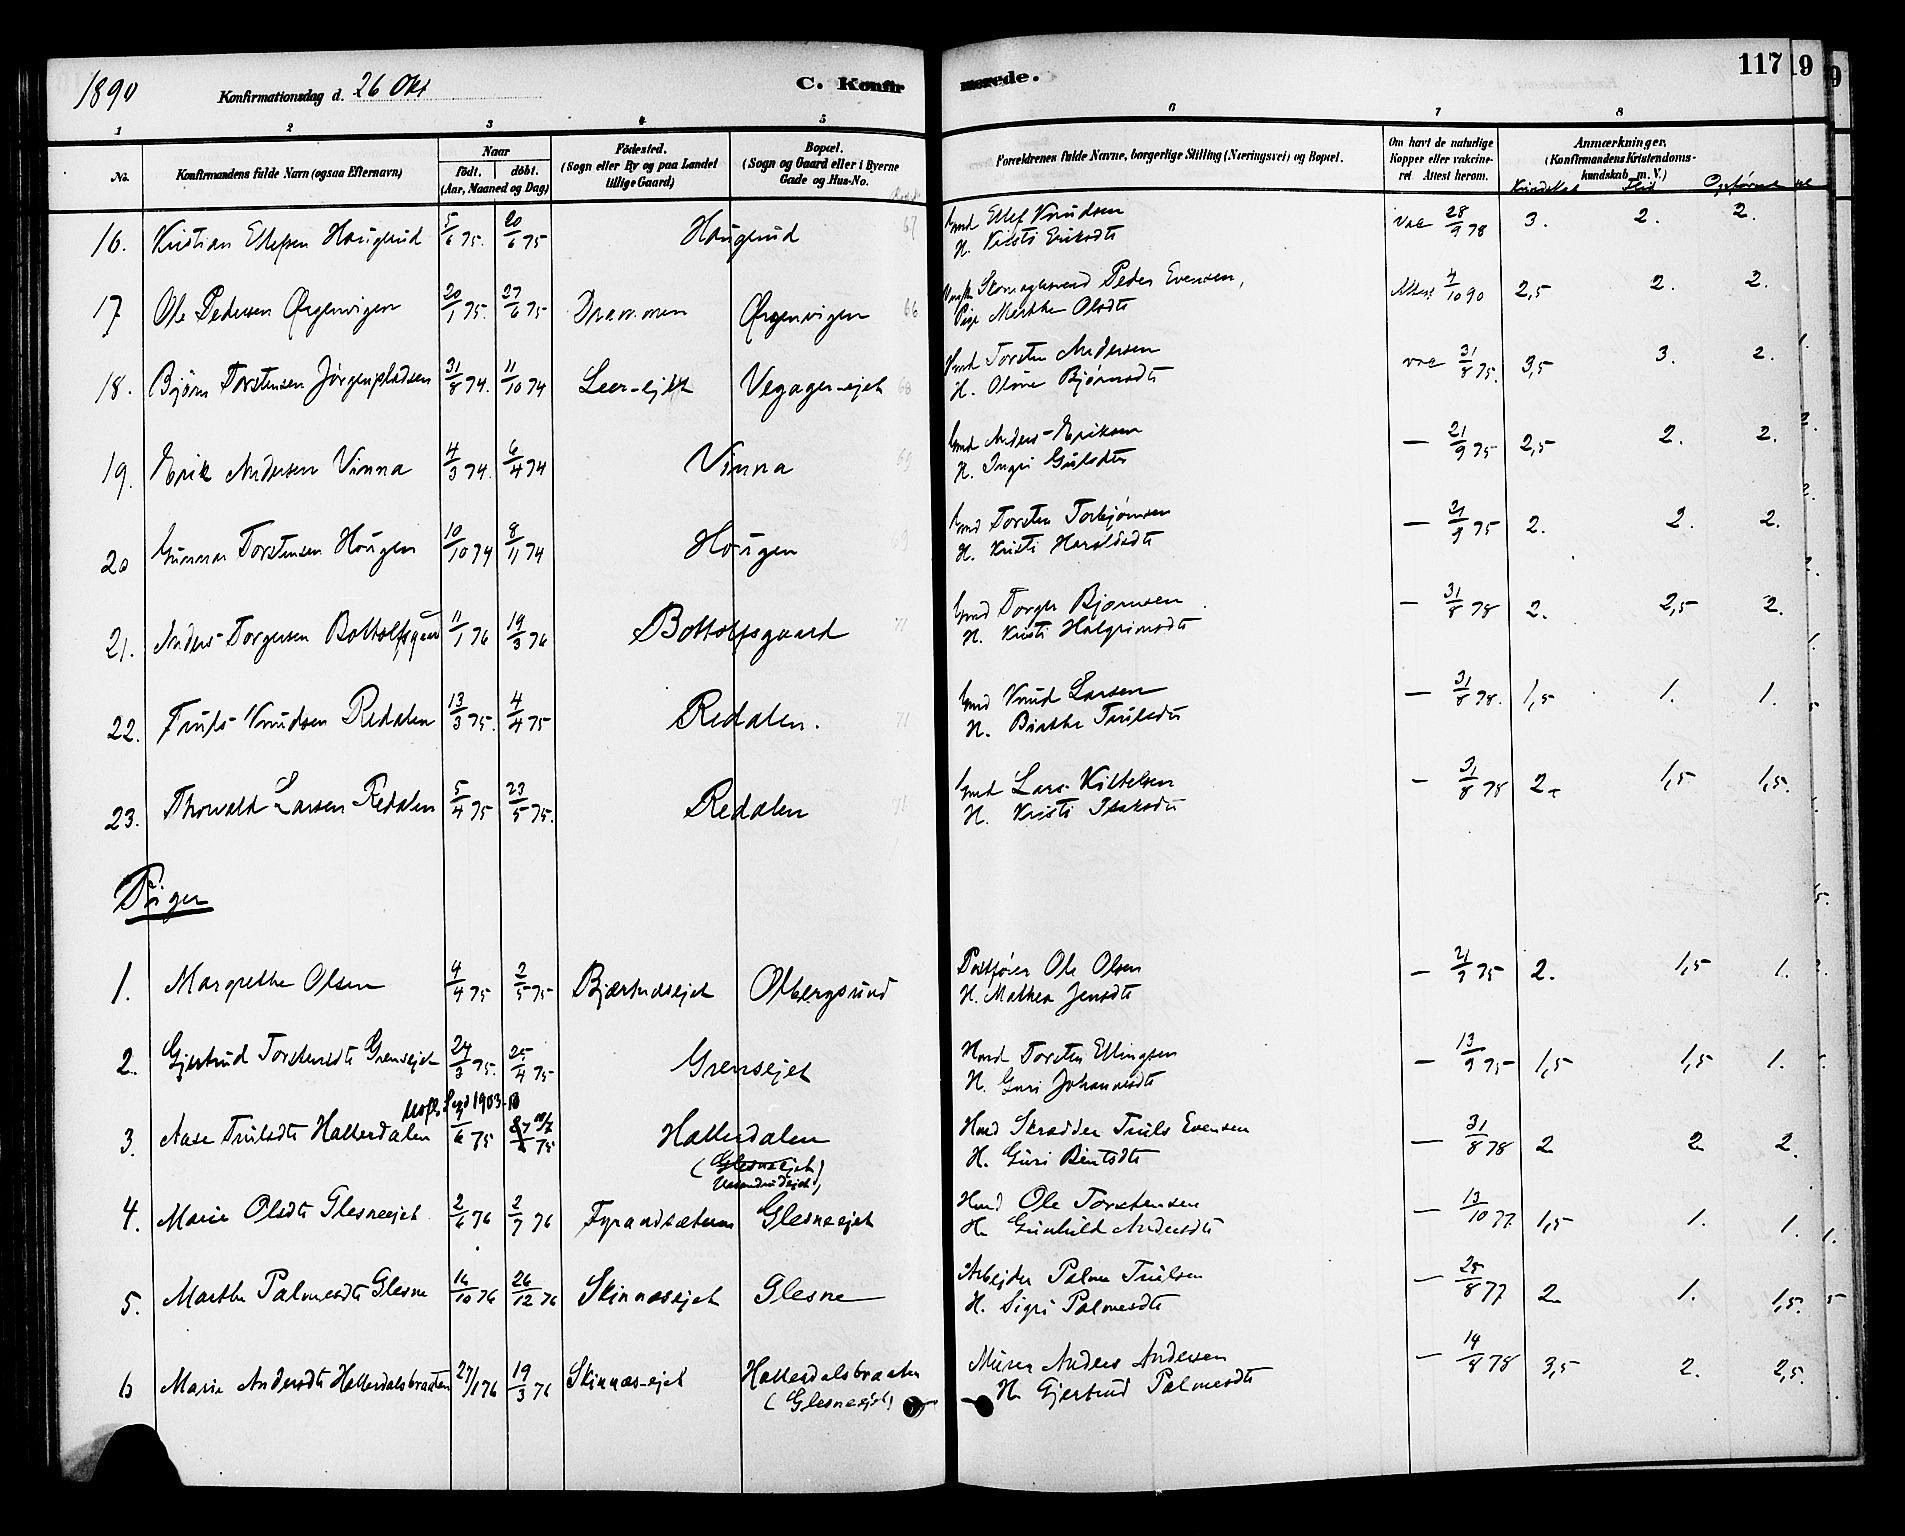 1890 Konfirmationsdag d. 26 Okt C. Konfirmerede. 117
1 2 3 4 5 6 7 8
No. Konfirmandens fulde Navn (ogsaa Efternavn) Naar födt. döbt. (Aar, Maaned og Dag) Födested. (Sogn eller By og paa Landet tillige Gaard) Bopæl. (Sogn og Gaard eller i Byerne Gade og Hus-No. Forældrenes fulde Navne, borgerlige Stilling (Næringsvei) og Bopæl. Om havt de naturlige Kopper eller vakcineret Attest herom. Anmærkninger, (Konfirmandens Kristendomskundskab m. V.)
Kundskab Flid Opførsel
16. Kristian Ellefsen Hougerud 5/6 75. 20/6 75 Hougerud 67 Gmd Ellef Knudsen vac 28/9 78 3. 2. 2.
H. Kristi Eriksdt
17. Ole Pedersen Ørgenvigen 20/1 75. 27/6 75 Drammen Ørgenvigen 66 Skomagersvend Peder Evensen, Attest 4/10 90 2,5 2. 2.
Pige Marthe Olsdt
18. Bjørn Torstensen Jørgenpladsen 31/8 74. 11/10 74 Leer-ejet Vegager-ejet 68 Torsten Andersen vac 31/8 75. 3,5 3. 2.
H. Oline Bjørnsdt
19. Erik Andersen Vinna 4/3 74. 6/4 74 Vinna 69 Gmd Anders Eriksen — 21/9 75 2,5 2. 2.
H. Ingri Gulsdt
20 Gunnar Torstensen Hougen 10/10 74 8/11 74 Hougen 69 Gmd Torsten Torbjørnsen — 21/9 75 2. 2. 2.
H. Kristi Haraldsdt
21. Anders Torgersen Bottolfsgaard 11/1 76 19/3 76 Bottolfsgaard 71 Gmd Torger Bjørnsen — 31/8 78 2. 2,5 2.
H. Kristi Halgrimsdt
22. Truls Knudsen Redalen 13/3 75. 4/4 75 Redalen. 71 Gmd Knud Larsen — 31/8 78. 1,5 1. 1.
H. Birthe Trulsdt
23. Thorvald Larsen Redalen 5/4 75 23/5 75. Redalen 71 Gmd Lars Kittelsen — 31/8 78 2. 1,5 1,5.
H. Kristi Isaksdt
Piger
1. Margrethe Olsen 4/4 75 2/5 75 Bjærtudsejet Olbergsund Postfører Ole Olsen — 21/9 75 2. 1,5 1.
H. Mathea Jensdt
2. Gjertrud Torstensdt Grensejet 24/3 75. 25/4 75 Grensejet Hmd Torsten Ellingsen — 13/9 75 1,5 1,5 1.
H. Guri Johannesdt
1903
3. Aase Trulsdt Hallerdalen /6 75 75 Hallerdalen Hmd Skrædder Truls Evensen — 31/8 78 2 2 2.
(Glesneejet) H. Guri Bentsdt
4. Marie Olsdt Glesneejet 2/6 76 2/7 76 Fyrandsæteren Glesneejet Hmd Ole Torstensen — 13/10 77. 1,5 1. 1.
H. Gunhild Andersdt
5. Marthe Palmesdt Glesne 16/10 76 26/12 76 Skinnæsejet Glesne Arbejder Palme Trulsen — 25/8 77 2 1. 1,5.
H. Sigri Palmesdt
6 Marie Andersdt Hallerdalsbraaten 27/1 76 19/3 76 Skinnæs-ejet Hallerdalsbraaten Murer Anders Andersen — 14/8 78 3,5 2. 2,5.
(Glesneejet) H. Gjertrud Palmesdt